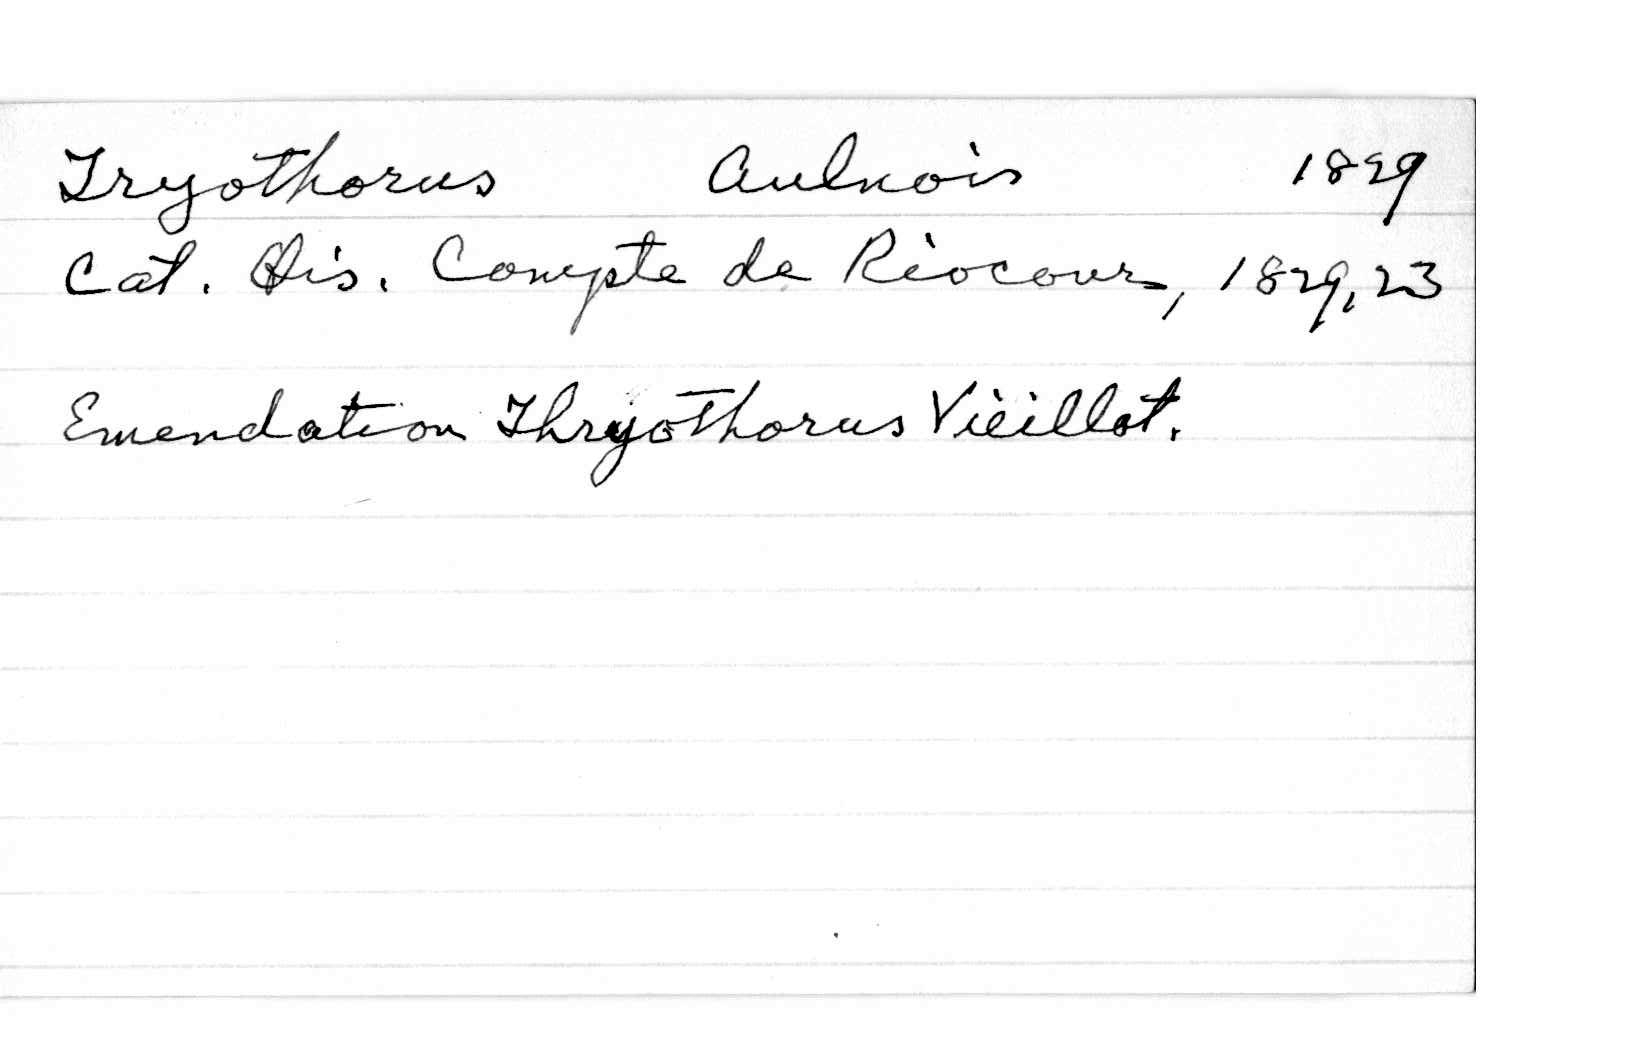 Tryothorus Aulnois 1829
Cat. Ois. Compte de Riocour, 1829, 23
Emendation Thryothorus Vieillot.